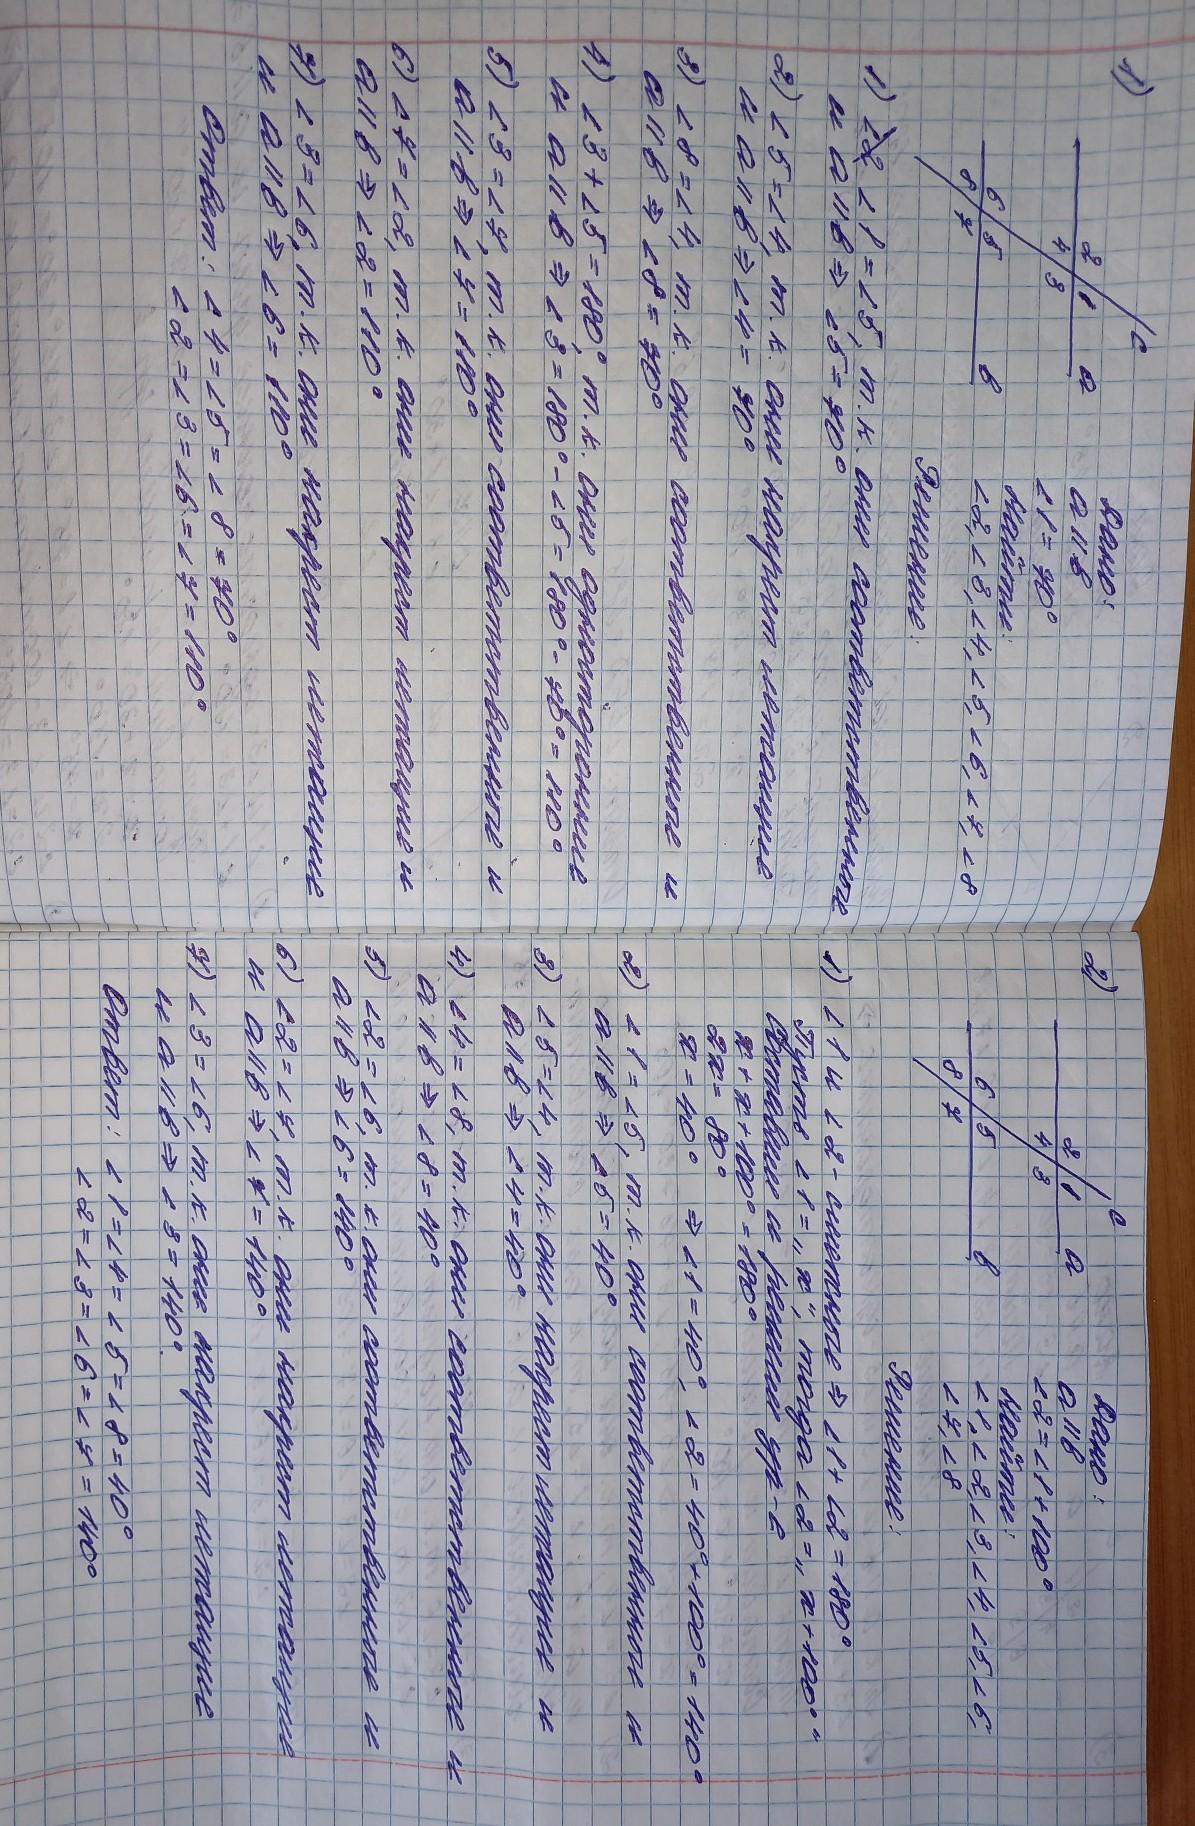 1)
c
2 1 a
4 3
6 5 в
8 7
Дано:
a || в
∠1 = 70°
Найти:
∠2, ∠3, ∠4, ∠5, ∠6, ∠7, ∠8
Решение:
1) ∠2, ∠1 = ∠5, т.к. они соответственные
и a || в ⇒ ∠5 = 70°
2) ∠5 = ∠4, т.к. они накрест лежащие
и a || в ⇒ ∠4 = 70°
3) ∠8 = ∠4, т.к. они соответственные и
a || в ⇒ ∠8 = 70°
4) ∠3 + ∠5 = 180°, т.к. они односторонние
и a || в ⇒ ∠3 = 180° - ∠5 = 180° - 70° = 110°
5) ∠3 = ∠7, т.к. они соответственные и
a || в ⇒ ∠7 = 110°
6) ∠7 = ∠2, т.к. они накрест лежащие и
a || в ⇒ ∠2 = 110°
7) ∠3 = ∠6, т.к. они накрест лежащие
и a || в ⇒ ∠6 = 110°
Ответ: ∠4 = ∠5 = ∠8 = 70°
∠2 = ∠3 = ∠6 = ∠7 = 110°
2)
c
2 1 a
4 3
6 5 в
8 7
Дано:
a || в
∠2 = ∠1 + 100°
Найти:
∠1, ∠2, ∠3, ∠4, ∠5, ∠6,
∠7, ∠8
Решение:
1) ∠1 и ∠2 - смежные ⇒ ∠1 + ∠2 = 180°
Пусть ∠1 = „x", тогда ∠2 = „x + 100°"
Составим и решим ур-е
x + x + 100° = 180°
2x = 80°
x = 40° ⇒ ∠1 = 40°, ∠2 = 40° + 100° = 140°
2) ∠1 = ∠5, т.к. они соответственные и
a || в ⇒ ∠5 = 40°
3) ∠5 = ∠4, т.к. они накрест лежащие и
a || в ⇒ ∠4 = 40°
4) ∠4 = ∠8, т.к. они соответственные и
a || в ⇒ ∠8 = 40°
5) ∠2 = ∠6, т.к. они соответственные и
a || в ⇒ ∠6 = 140°
6) ∠2 = ∠7, т.к. они накрест лежащие
и a || в ⇒ ∠7 = 140°
7) ∠3 = ∠6, т.к. они накрест лежащие
и a || в ⇒ ∠3 = 140°
Ответ: ∠1 = ∠4 = ∠5 = ∠8 = 40°
∠2 = ∠3 = ∠6 = ∠7 = 140°